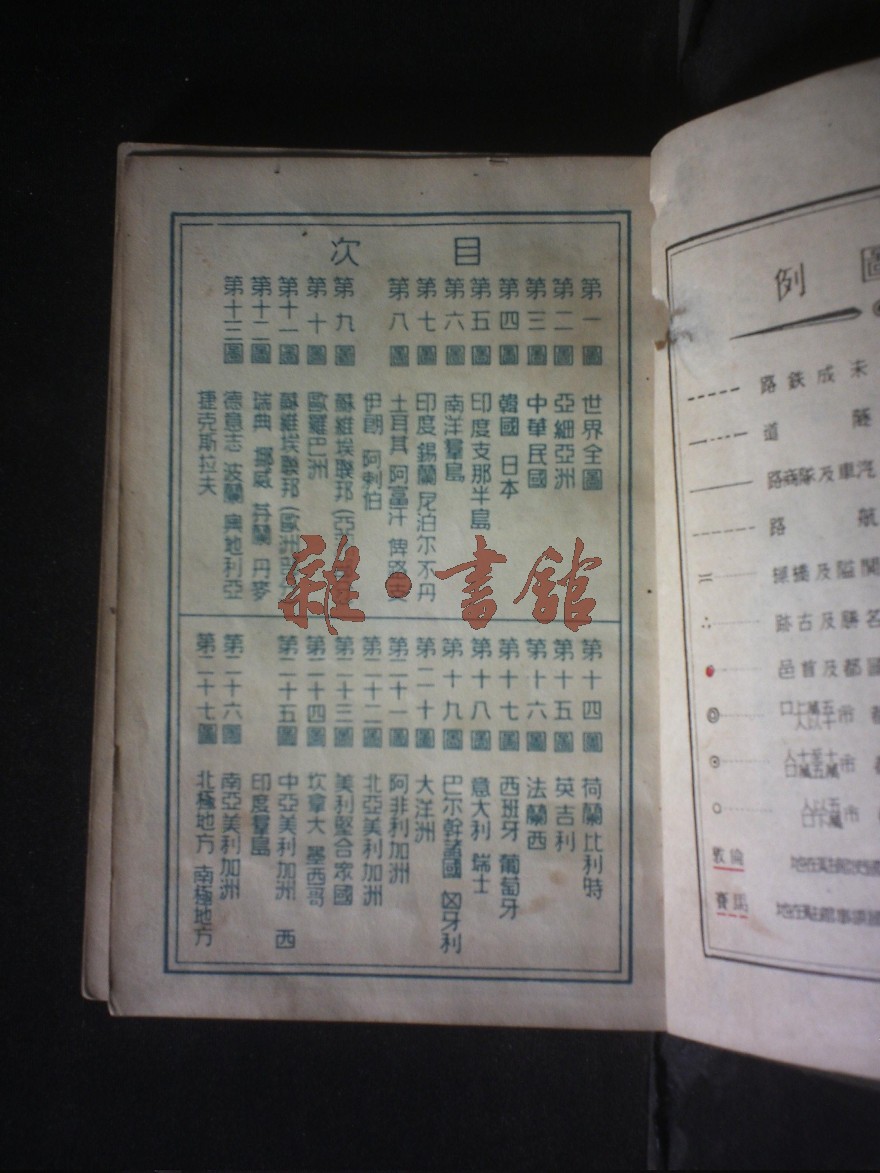 目次
第一圖 世界全圖
第二圖 亞細亞洲
第三圖 中華民國
第四圖 韓國 日本
第五圖 印度支那半島
第六圖 南洋羣島
第七圖 印度 錫蘭 尼泊尔 不丹
第八圖 土耳其 阿富汗 俾路支
伊朗 阿剌伯
第九圖 蘇維埃聯邦(亞
第十圖 歐羅巴洲
第十一圖 蘇維埃聯邦(歐洲
第十二圖 瑞典 挪威 芬蘭 丹麥
第十三圖 德意志 波蘭 奥地利亞
捷克斯拉夫
第十四圖 荷蘭比利時
第十五圖 英吉利
第十六圖 法蘭西
第十七圖 西班牙 葡萄牙
第十八圖 意大利 瑞士
第十九圖 巴尔幹諸國 匈牙利
第二十圖 大洋洲
第二十一圖 阿非利加洲
第二十二圖 北亞美利加洲
第二十三圖 美利堅合衆國
第二十四圖 坎拿大 墨西哥
第二十五圖 中亞美利加洲 西
印度羣島
第二十六圖 南亞美利加洲
第二十七圖 北極地方 南極地方
雜·書館
圖例
未成鉄路
隧道
汽車及隊商路
航路
関隘及橋樑
名勝及古跡
國都及首邑
都市 五萬以上人口
都市
都市
倫敦
馬賽